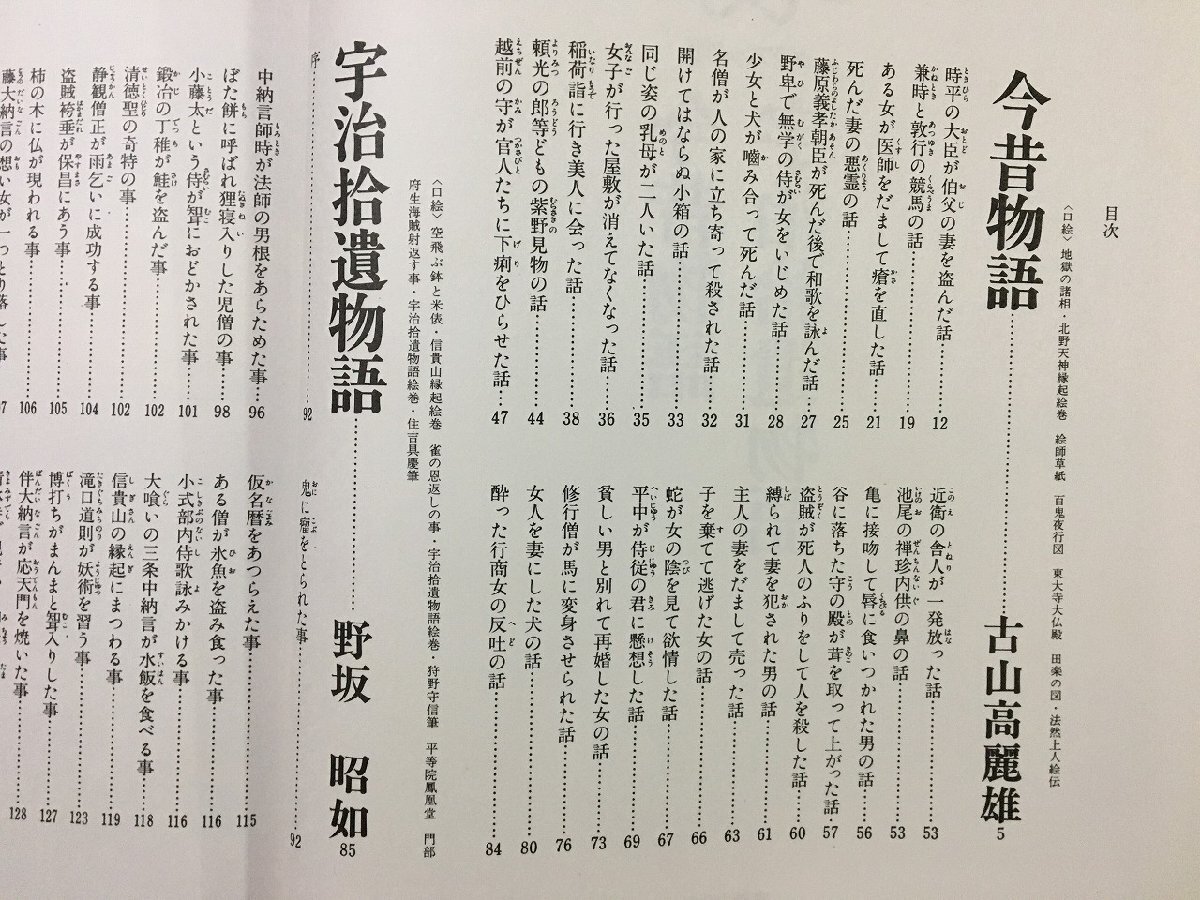 目次
今昔物語……………古山高麗雄 5
〈口絵〉地獄の諸相・北野天神縁起絵巻 絵師草紙 百鬼夜行図 東大寺大仏殿 田楽の図・法然上人絵伝
時平の大臣が伯父の妻を盗んだ話……12
兼時と敦行の競馬の話……19
ある女が医師をだまして瘡を直した話……21
死んだ妻の悪霊の話……25
藤原義孝朝臣が死んだ後で和歌を詠んだ話……27
野卑で無学の侍が女をいじめた話……28
少女と犬が嚙み合って死んだ話……31
名僧が人の家に立ち寄って殺された話……32
開けてはならぬ小箱の話……33
同じ姿の乳母が二人いた話……35
女子が行った屋敷が消えてなくなった話……36
稲荷詣に行き美人に会った話……38
頼光の郎等どもの紫野見物の話……44
越前の守が官人たちに下痢をひらせた話……47
近衛の舎人が一発放った話……53
池尾の禅珍内供の鼻の話……53
亀に接吻して唇に食いつかれた男の話……56
谷に落ちた守の殿が茸を取って上がった話……57
盗賊が死人のふりをして人を殺した話……60
縛られて妻を犯された男の話……61
主人の妻をだまして売った話……63
子を棄てて逃げた女の話……66
蛇が女の陰を見て欲情した話……67
平中が侍従の君に懸想した話……69
貧しい男と別れて再婚した女の話……73
修行僧が馬に変身させられた話……76
女人を妻にした犬の話……80
酔った行商女の反吐の話……84
宇治拾遺物語……………野坂 昭如 85
〈口絵〉空飛ぶ鉢と米俵・信貴山縁起絵巻 雀の恩返しの事・宇治拾遺物語絵巻・狩野守信筆 平等院鳳凰堂 門部
府生海賊射返す事・宇治拾遺物語絵巻・住吉具慶筆
序……92
鬼に瘤をとられた事……92
中納言師時が法師の男根をあらためた事……96
ぼた餅に呼ばれ狸寝入りした児僧の事……98
小藤太という侍が聟におどかされた事……101
鍛冶の丁稚が鮭を盗んだ事……102
清徳聖の奇特の事……102
静観僧正が雨乞いに成功する事……104
盗賊袴垂が保昌にあう事……105
柿の木に仏が現われる事……106
藤大納言の想い女が一つとり落した事
仮名暦をあつらえた事……115
ある僧が氷魚を盗み食った事……116
小式部内侍歌詠みかける事……116
大喰いの三条中納言が水飯を食べる事……118
信貴山の縁起にまつわる事……119
滝口道則が妖術を習う事……123
博打ちがまんまと聟入りした事……127
伴大納言が応天門を焼いた事……128